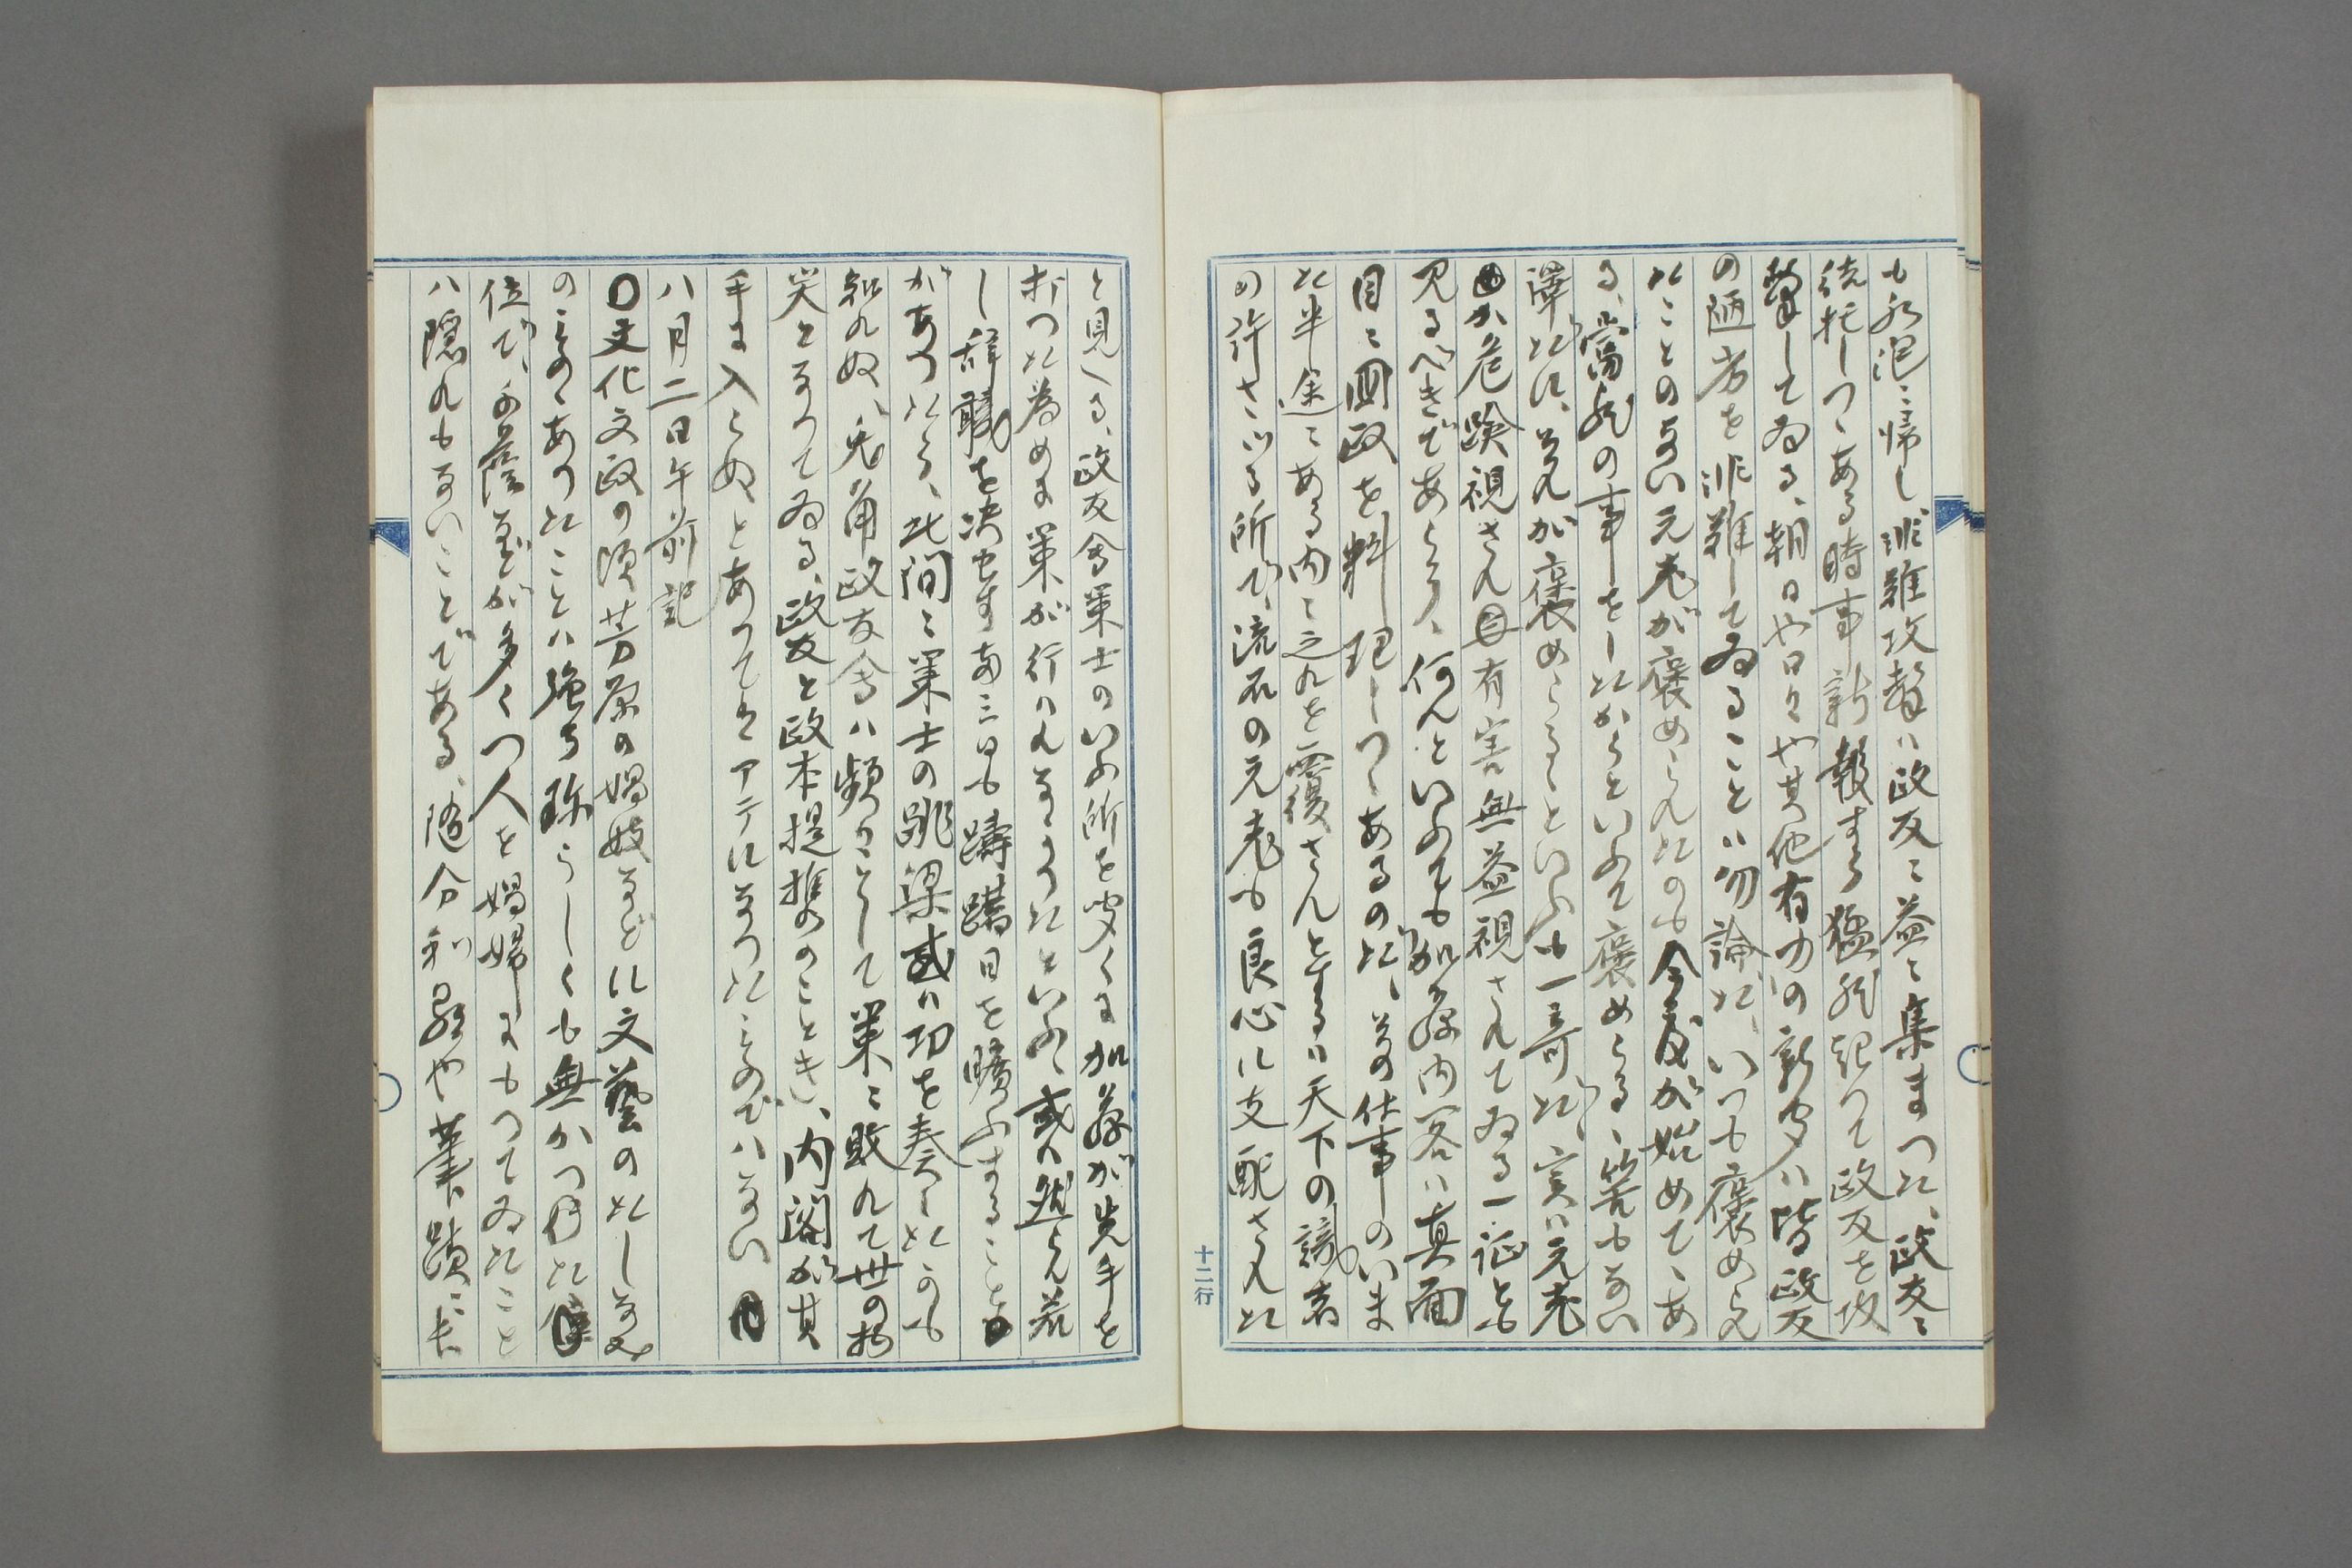 も水泡に帰し、非難攻撃ハ政友に益々集まつた、政友に
してゐる、朝日や日々や其他有力の新聞ハ皆政友
の陋劣を非難してゐることハ勿論だ、いつも褒められ
たことのない元老が褒められたのも今度が始めて、あ
る、當然の事をしたからといふて褒めらるゝ筈もない
譯だに、それが褒めらるゝといふも一奇だ、実ハ元老
か危険視され有害無益視されてゐる一証とも
見るべきであらう、何んといふても加藤内客ハ真面
目に国政を料理しつゝあるのだ、其の仕事のいま
た半途にある内に之れを覆さんとするハ天下の識者
の許さゝる所で、流石の元老も良心に支配された
十二行
と見へる、政友会策士のいふ所を聞くに加藤が先手を
打つた為めに策が行ハれなかつたといふ、或ハ然らん若
し辞職を决せず両三日も躊躇日を曠ふすること
があつたら、此間に策士の跳梁或ハ功を奏したかも
知れぬ、兎角政友会ハ頻りにして策に敗れて世の物
笑となつてゐる、政友と政本提携のことき、内閣が其
手に入らぬ、とあつてはアテになつたものでハない
八月二日午前記
〇文化文政の頃芳原の娼妓などに文藝のたしなみ
のものゝあつたことハ強ち珍らしくも無かつた
位で、多くつ人を娼婦にもつてゐたこと
ハ隠れもないことである、随分和歌や筆蹟に長